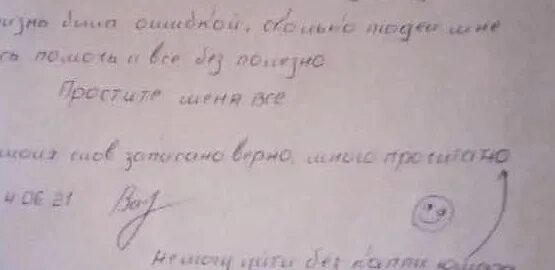 изнь была ошибкой, сколько людей мне
сь помочь и все без полезно
Простите меня все
моих слов записано верно, мною прочитано
4.06 21
не могу уйти без капли юмора